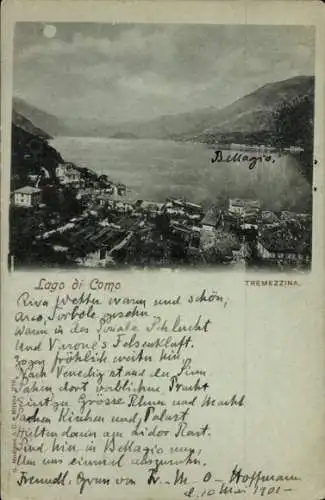 Bellagio.
Lago di Como
TREMEZZINA.
Riva hatten warm und schön,
Arco, Torbole gesehn
Waren in des Ponale Schlucht
Und Varone's Felsenkluft.
Zogen fröhlich weiter hin
Nach Venedig stand der Sinn
Sahen dort verblichne Pracht
Einst'ge Grösse Ruhm und Macht
Sachen Kirchen und Palast
Hielten dann am Lidor Rast.
Sind hier in Bellagio nun,
Um uns einmal auszuruhn.
Freundl. Gruss von Fr. M. O. Hoffmann
d. 10 Mai 1901.